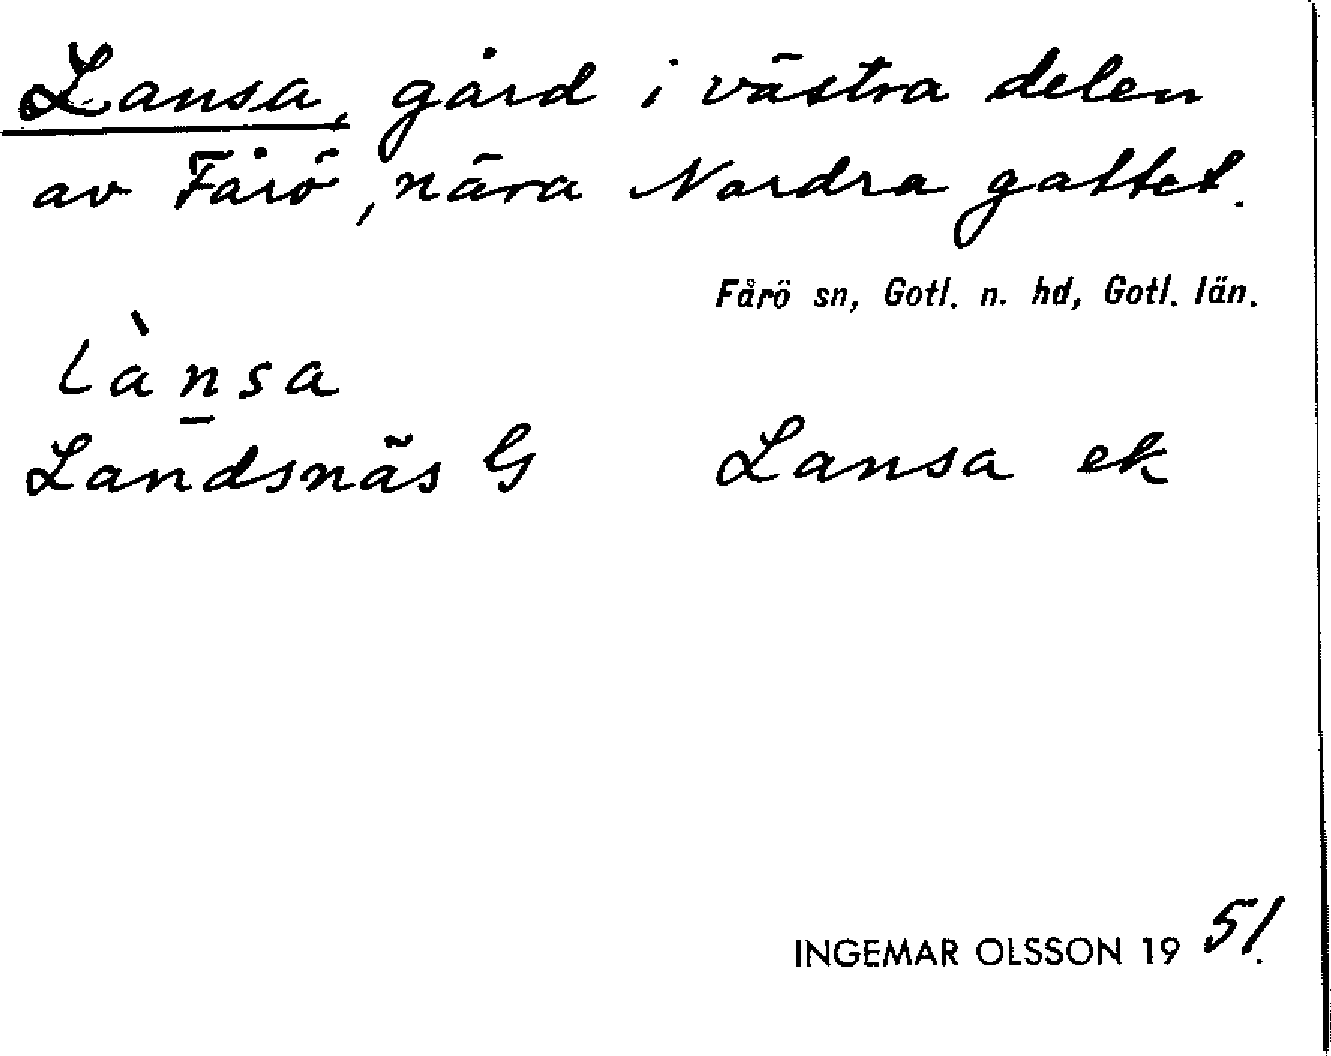 Lansa, gård i västra delen
av Fårö, nära Nordra gattet.
Fårö sn, Gotl. n. hd, Gotl. län.
lànsa
Landsnäs G Lansa ek
INGEMAR OLSSON 1951.